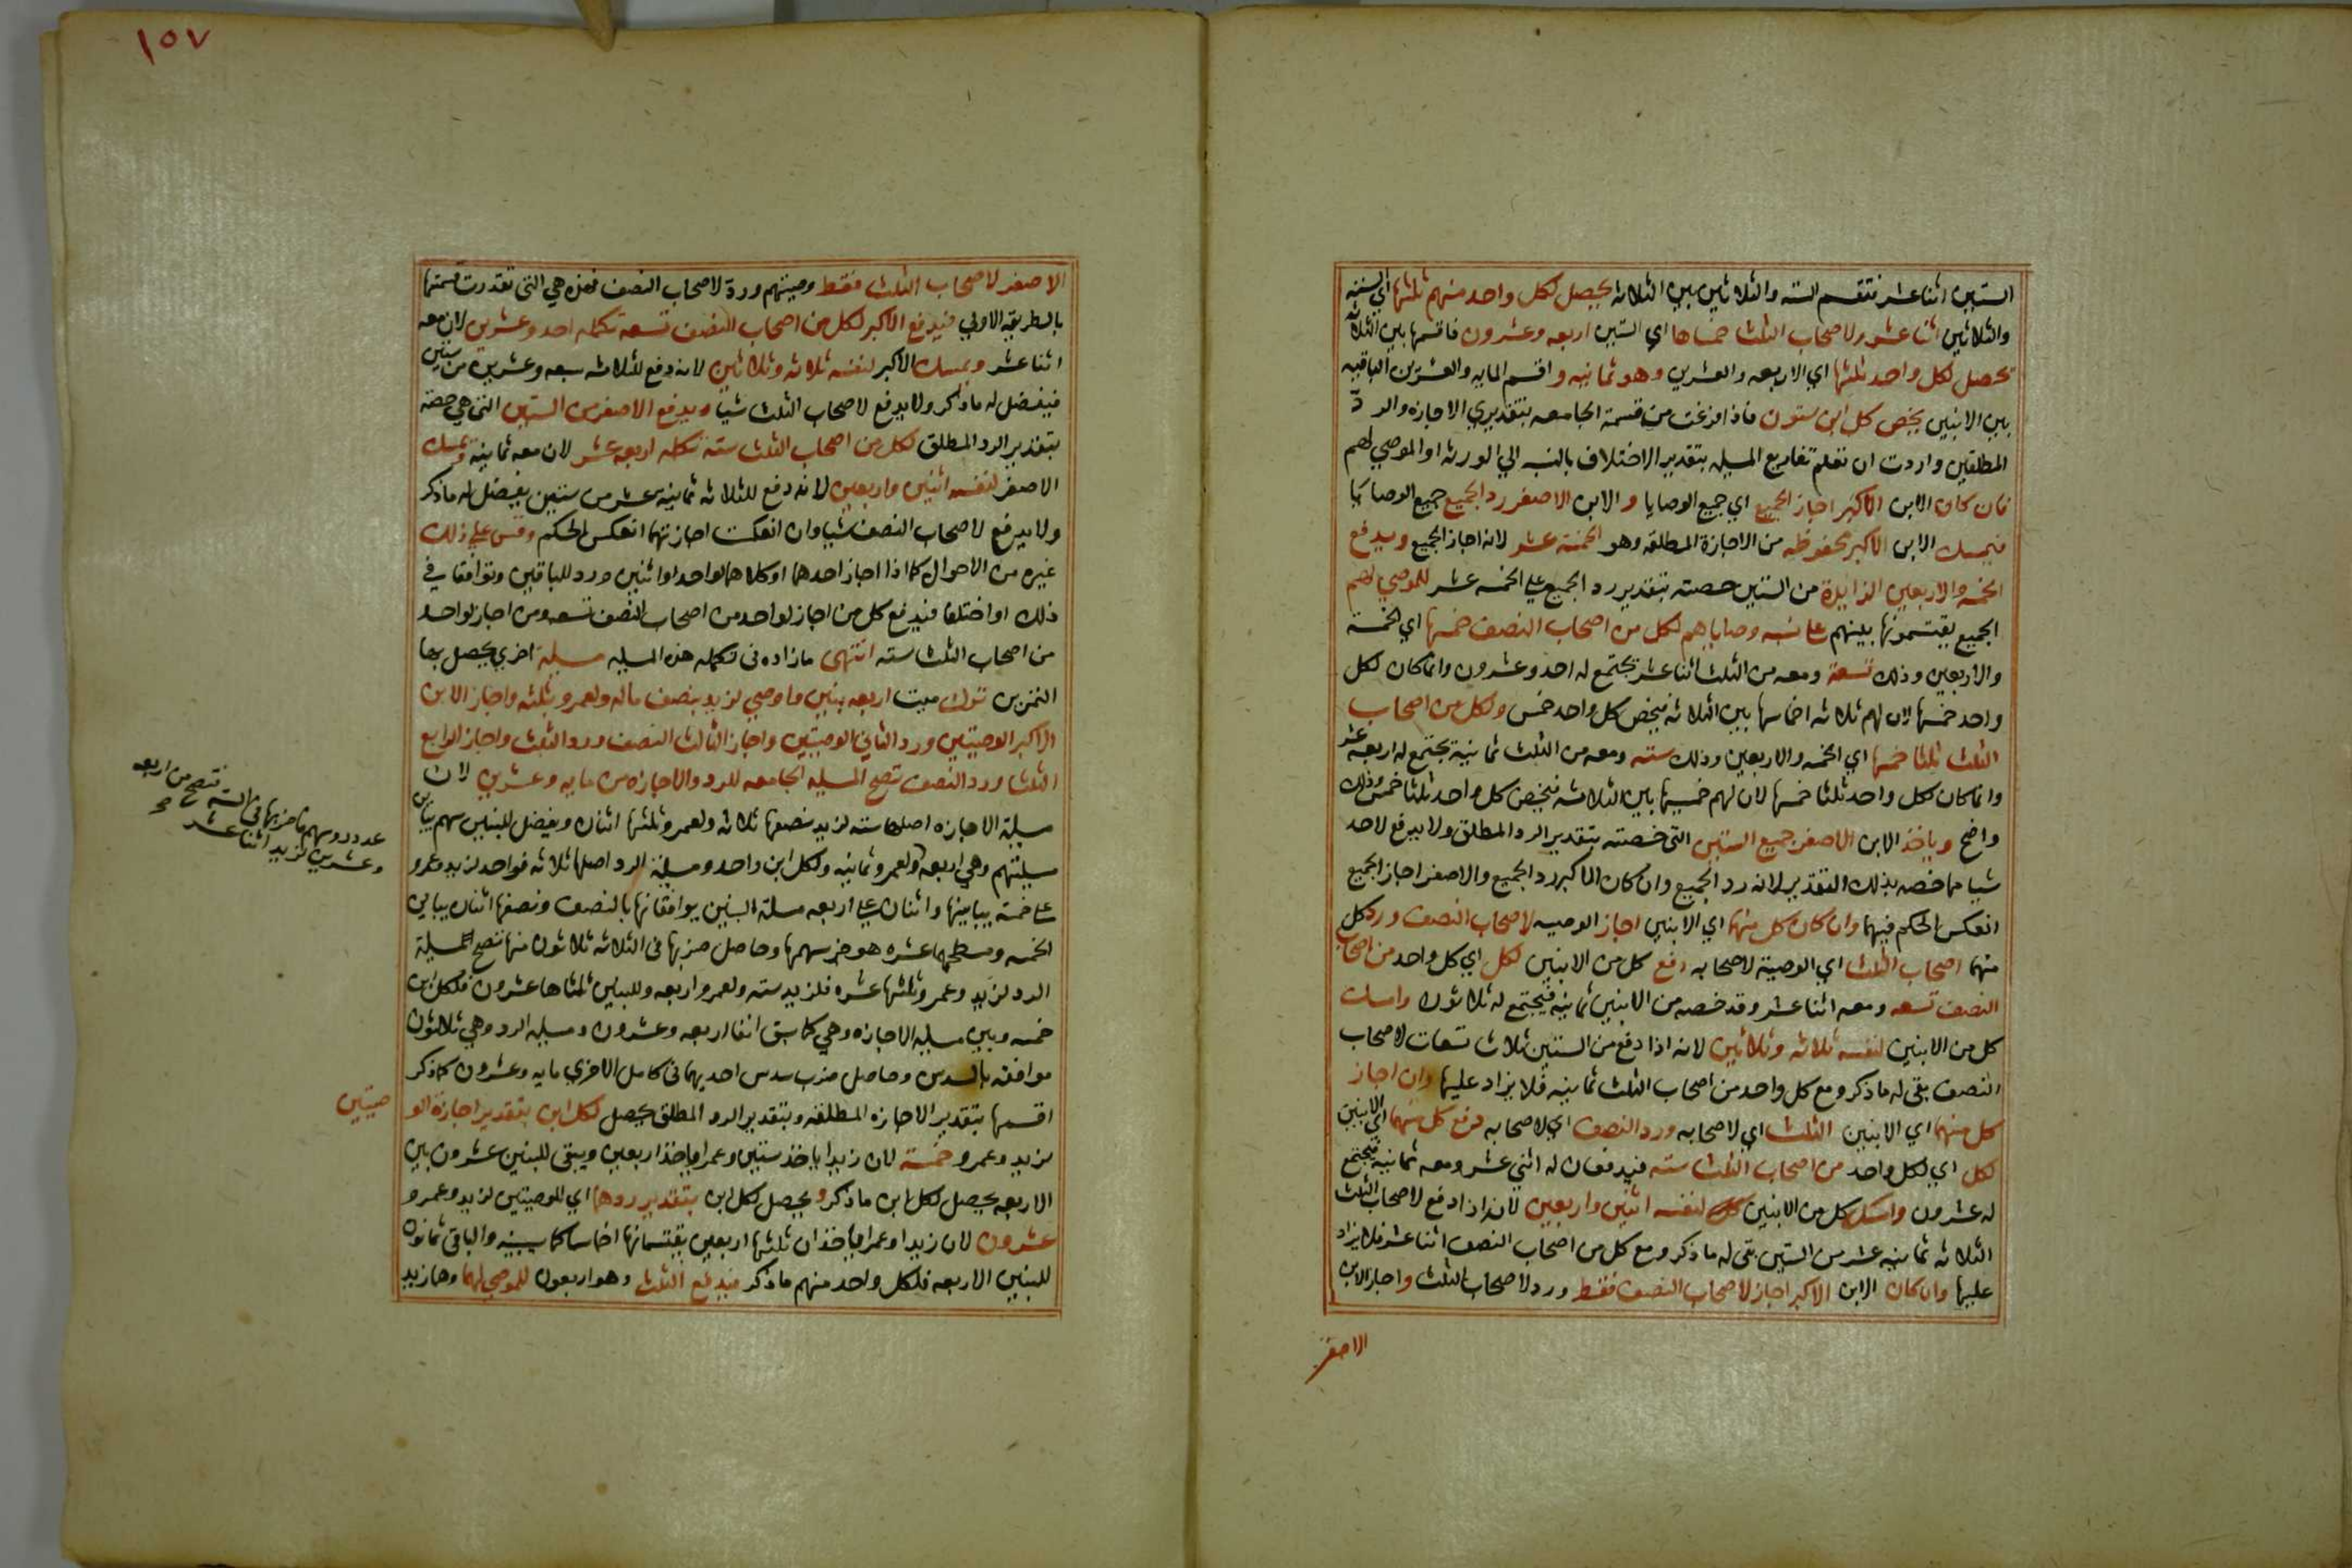 الستين اثنا عشر فتقسم الستة والثلاثين بين الثلاثة يحصل لكل واحد منهم ثلثها اي الستة
والثلاثين اثنا عشر ولاصحاب الثلث خمساها اي الستين اربعه وعشرون فاقسمها بين الثلاثة
يحصل لكل واحد ثلثها اي الاربعه والعشرين وهو ثمانيه واقسم المايه والعشرين الباقيه
بين الابنين يخص كل ابن ستون فاذا فرغت من قسمة الجامعه بتقديري الاجازه والرد
المطلقين واردت ان تعلم تفاريع المسيله بتقدير الاختلاف بالنسبه الي الورثه او الموصي لهم
فان كان الابن الاكبر اجاز الجميع اي جميع الوصايا والابن الاصغر رد الجميع جميع الوصايا
فيمسك الابن الاكبر محفوظه من الاجازة المطلقه وهو الخمسة عشر لانه اجاز الجميع ويدفع
الخمسه والاربعين الزايدة من الستين حصته بتقدير رد الجميع علي الخمسه عشر للموصي لهم
الجميع يقتسمونها بينهم علي نسبه وصاياهم لكل من اصحاب النصف خمسها اي الخمسة
والاربعين وذلك تسعة ومعه من الثلث اثنا عشر يجتمع له احد وعشرون وانما كان لكل
واحد خمسها لان لهم ثلاثه اخماسها بين الثلاثه فيخص كل واحد خمس ولكل من اصحاب
الثلث ثلثا خمسها اي الخمسه والاربعين وذلك سته ومعه من الثلث ثمانية يجتمع له اربعه عشر
وانما كان لكل واحد ثلثا خمسها لان لهم خمسيها بين الثلاثه فيخص كل واحد ثلثا خمس وذلك
واضح وياخذ الابن الاصغر جميع الستين التي خصته بتقدير الرد المطلق ولا يدفع لاحد
شيا مما خصه بذلك التقدير لانه رد الجميع وان كان الاكبر رد الجميع والاصغر اجاز الجميع
انعكس الحكم فيهما وان كان كل منهما اي الابنين اجاز الوصيه لاصحاب النصف ورد كل
منهما اصحاب الثلث اي الوصية لاصحابه دفع كل من الابنين لكل اي كل واحد من اصحاب
النصف تسعه ومعه اثنا عشر وقد خصه من الابنين ثمانيه فيجتمع له ثلاثون وامسك
كل من الابنين لنفسه ثلاثه وثلاثين لانه اذا دفع من الستين ثلاث تسعات لاصحاب
النصف بقي له ما ذكر ومع كل واحد من اصحاب الثلث ثمانيه فلا يزاد عليها وان اجاز
كل منهما اي الابنين الثلث اي لاصحابه ورد النصف اي لاصحابه دفع كل منهما اي الابنين
لكل اي لكل واحد من اصحاب الثلث سته فيدفعان له اثني عشر ومعه ثمانيه فيجتمع
له عشرون وامسك كل من الابنين لنفسه اثنين واربعين لانه اذا دفع لاصحاب الثلث
الثلاثه ثمانيه عشر من الستين بقي له ما ذكر ومع كل من اصحاب النصف اثنا عشر فلا يزاد
عليها وان كان الابن الاكبر اجاز لاصحاب النصف فقط ورد لاصحاب الثلث واجاز الابن
الاصغر
١٥٧
الاصغر لاصحاب الثلث فقط وصيتهم ورد لاصحاب النصف فهذه هي التي تقدرت قسمتها
بالطريقه الاولي فيدفع الاكبر لكل من اصحاب النصف تسعه تكمله احد وعشرين لان معه
اثنا عشر ويمسك الاكبر لنفسه ثلاثه وثلاثين لانه دفع للثلاثه سبعه وعشرين من ستين
فيفضل له ما ذكر ولا يدفع لاصحاب الثلث شيا ويدفع الاصغر من الستين التي هي حصة
بتقدير الرد المطلق لكل من اصحاب الثلث ستة تكمله اربعه عشر لان معه ثمانية ويمسك
الاصغر لنفسه اثنين واربعين لانه دفع للثلاثه ثمانيه عشر من ستين يفضل له ما ذكر
ولا يدفع لاصحاب النصف شيا وان انعكست اجازتهما انعكس الحكم وقس علي ذلك
غيره من الاحوال كما اذا اجاز احدهما او كلاهما لواحد او اثنين ورد للباقين وتوافقا في
ذلك او اختلفا فيدفع كل من اجاز لواحد من اصحاب النصف تسعه ومن اجاز لواحد
من اصحاب الثلث سته انتهى ما زاده في تكمله هذه المسيله مسيلة اخري يحصل بها
التمرين ترك ميت اربعه بنين فاوصي لزيد بنصف ماله ولعمرو بثلثه واجاز الابن
الاكبر الوصيتين ورد الثاني الوصيتين واجاز الثالث النصف ورد الثلث واجاز الرابع
الثلث ورد النصف تصح المسيله الجامعه للرد والاجازه من مايه وعشرين لان
مسيلة الاجازه اصلها سته لزيد نصفها ثلاثه ولعمرو ثلثها اثنان ويفضل للبنين سهم يباين
مسيلتهم وهي اربعه ولعمرو ثمانيه ولكل ابن واحد ومسيلة الرد اصلها ثلاثه فواحد لزيد وعمرو
علي خمسة يباينها واثنان علي اربعه مسيلة البنين يوافقانها بالنصف ونصفها اثنان يباين
الخمسه ومسطحهما عشره هو جزء سهمها وحاصل ضربها في الثلاثه ثلاثون منها تصح مسيلة
الرد لزيد وعمرو ثلثها عشره فلزيد سته ولعمرو اربعه وللبنين ثلثاها عشرون فلكل ابن
خمسه وبين مسيله الاجازه وهي كما سبق انفا اربعه وعشرون ومسيله الرد وهي ثلاثون
موافقه بالسدس وحاصل ضرب سدس احديهما في كامل الاخري مايه وعشرون كما ذكر
اقسمها بتقدير الاجازه المطلقه وبتقدير الرد المطلق يحصل لكل ابن بتقدير اجازة الو
صيتين
لزيد وعمرو خمسة لان زيدا ياخذ ستين وعمرا ياخذ اربعين ويبقي للبنين عشرون بين
الاربعه يحصل لكل ابن ما ذكر ويحصل لكل ابن بتقدير ردهما اي للوصيتين لزيد وعمرو
عشرون لان زيدا وعمرا ياخذان ثلثها اربعين يقتسمانها اخماسا والباقي ثمانون
للبنين الاربعه فلكل واحد منهم ما ذكر فيدفع الثلث وهو اربعون للموصي لهما وهما زيد
عدد روسهم فاضربها في الستة تصح من اربعه
وعشرين لزيد اثنا عشر